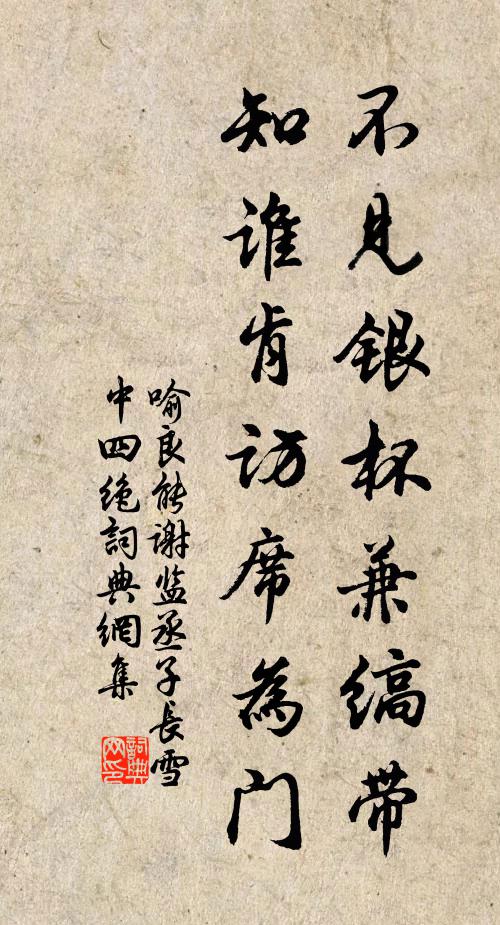 不见银杯兼缟带
知谁肯访席為门
喻良能谢监丞子長雪
中四绝詞典網集
詞典
网印